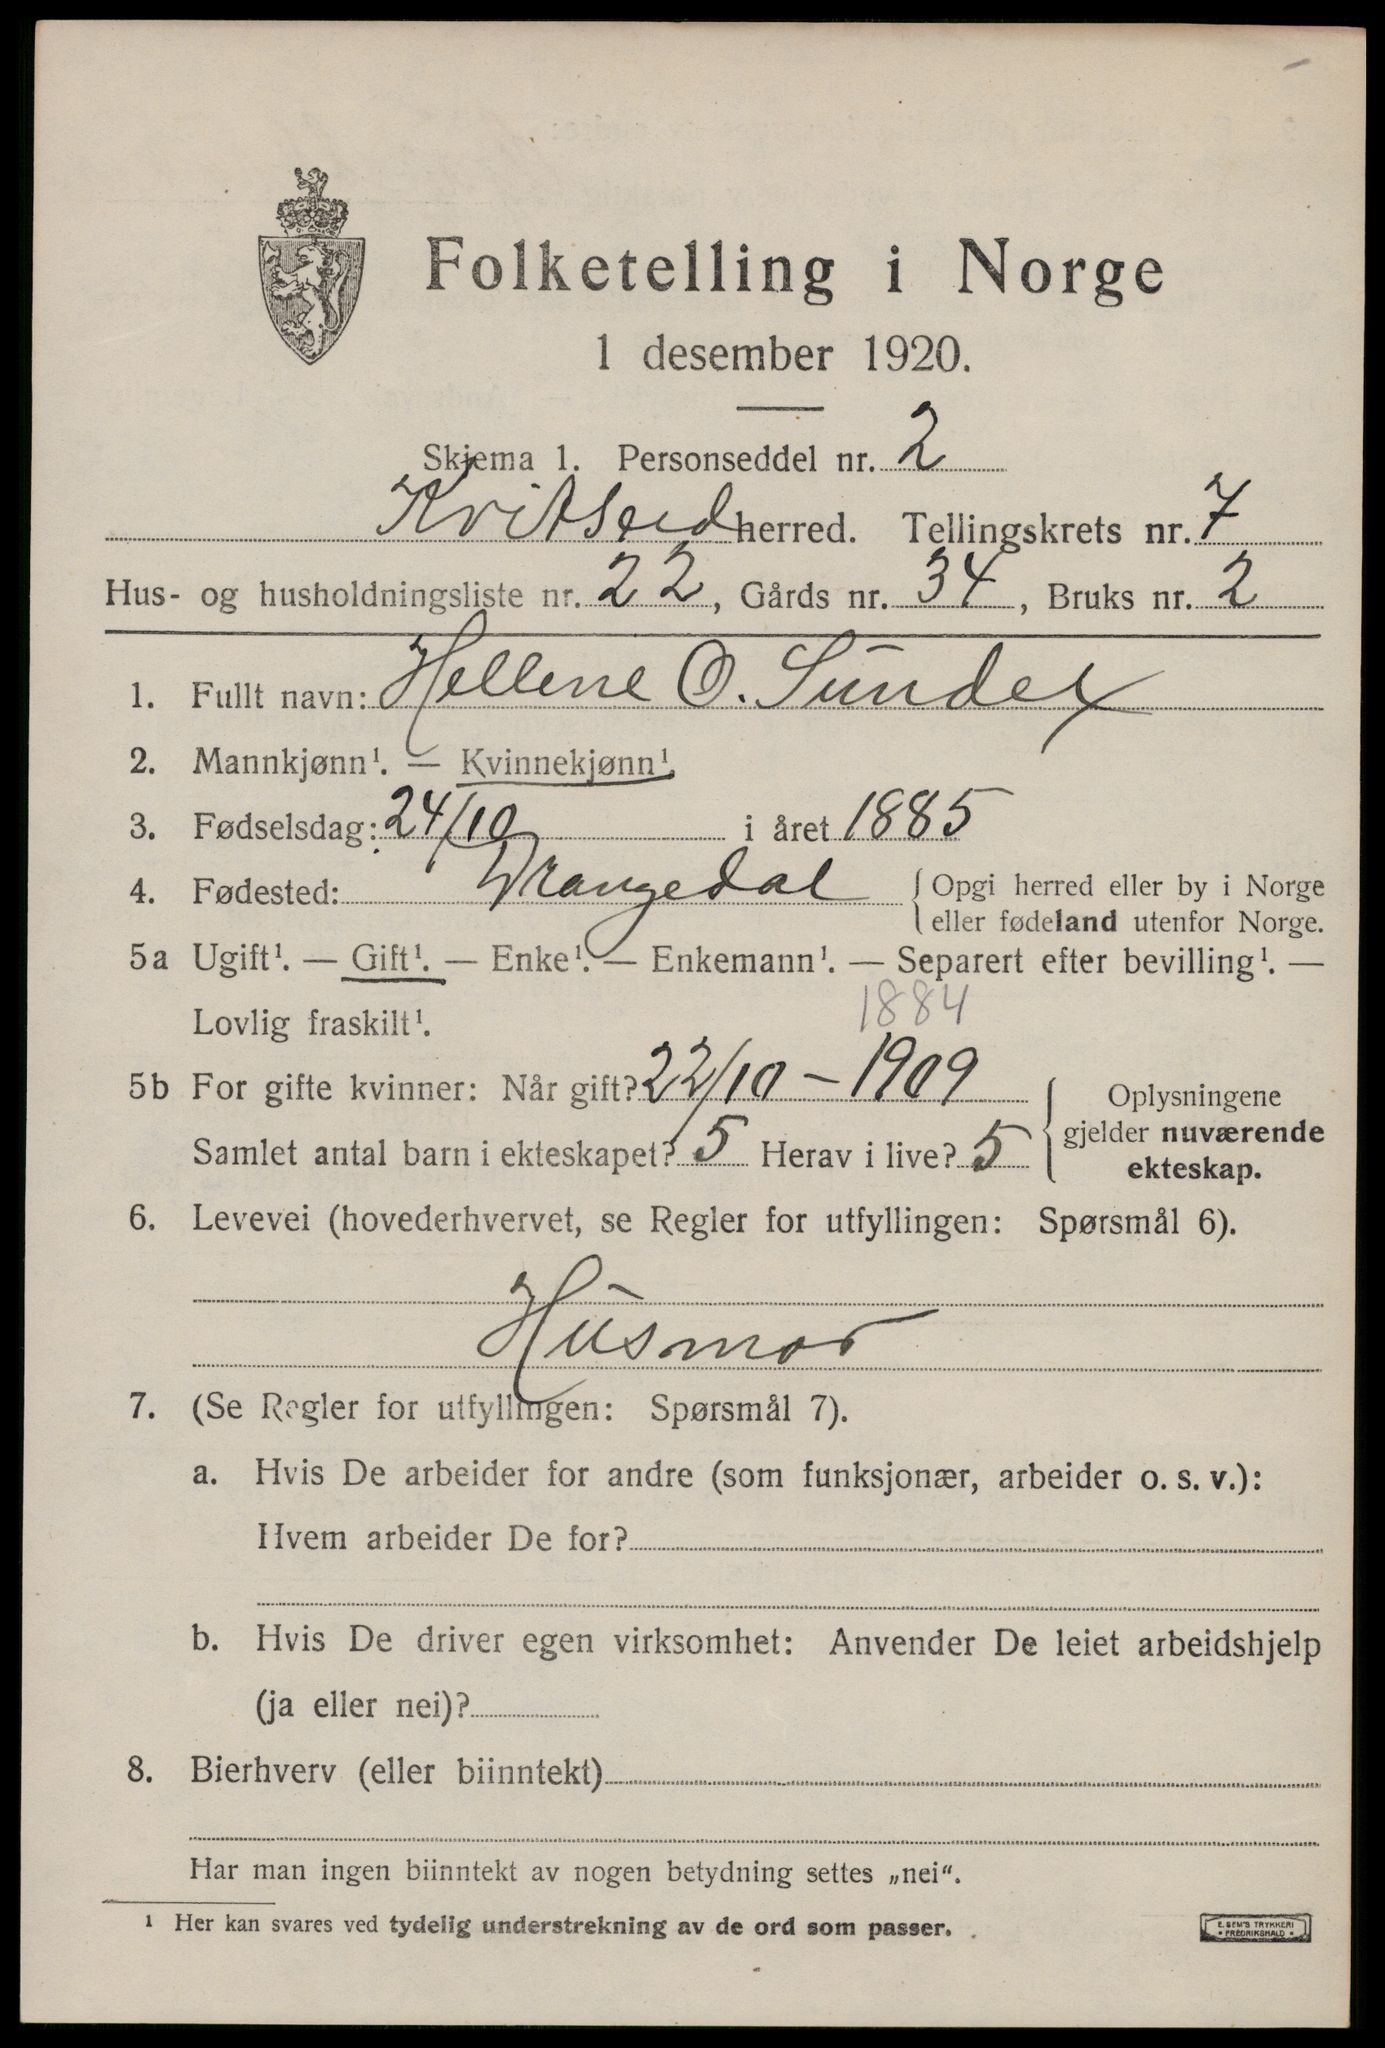 Folketelling i Norge
1 desember 1920.
Skjema 1. Personseddel nr. 2
Kvitseid herred. Tellingskrets nr. 7
Hus- og husholdningsliste nr. 22, Gårds nr. 34, Bruks nr. 2
1. Fullt navn: Hellene O. Sunde
2. Mannkjønn¹. — Kvinnekjønn¹.
3. Fødselsdag: 24/10 i året 1885
4. Fødested: Drangedal { Opgi herred eller by i Norge
eller fødeland utenfor Norge.
5a Ugift¹. — Gift¹. — Enke¹. — Enkemann¹. — Separert efter bevilling¹. —
Lovlig fraskilt¹.
1884
5b For gifte kvinner: Når gift? 22/10 - 1909
Samlet antal barn i ekteskapet? 5 Herav i live? 5
Oplysningene
gjelder nuværende
ekteskap.
6. Levevei (hovederhvervet, se Regler for utfyllingen: Spørsmål 6).
Husmor
7. (Se Regler for utfyllingen: Spørsmål 7).
a. Hvis De arbeider for andre (som funksjonær, arbeider o. s. v.):
Hvem arbeider De for?
b. Hvis De driver egen virksomhet: Anvender De leiet arbeidshjelp
(ja eller nei)?
8. Bierhverv (eller biinntekt)
Har man ingen biinntekt av nogen betydning settes „nei“.
¹ Her kan svares ved tydelig understrekning av de ord som passer.
E. SEM'S TRYKKERI
• FREDRIKSHALD •